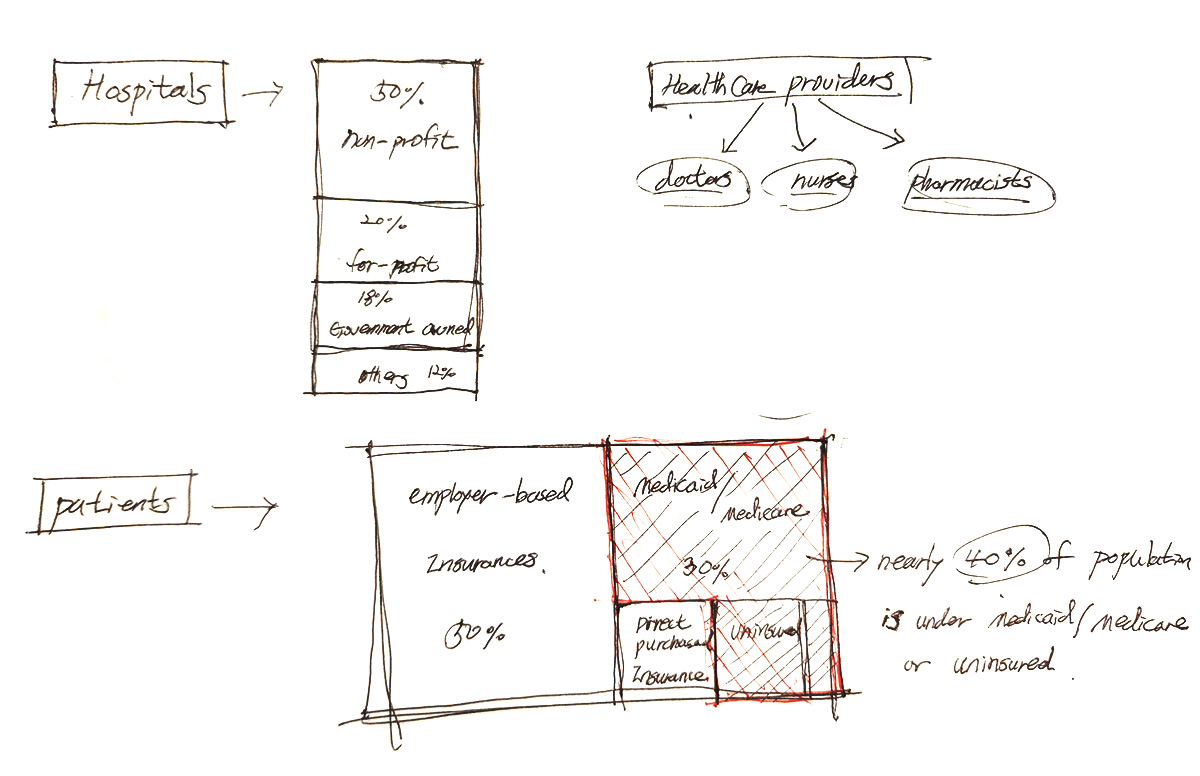 Hospitals
50%
non-profit
20%
for-profit
18%
Government owned
others 12%
HealthCare providers
doctors
nurses
pharmacists
patients
employer-based
Insurances.
50%
medicaid/
medicare
30%
Direct
purchased
Insurance.
uninsured
nearly 40% of population
is under medicaid/medicare
or uninsured.